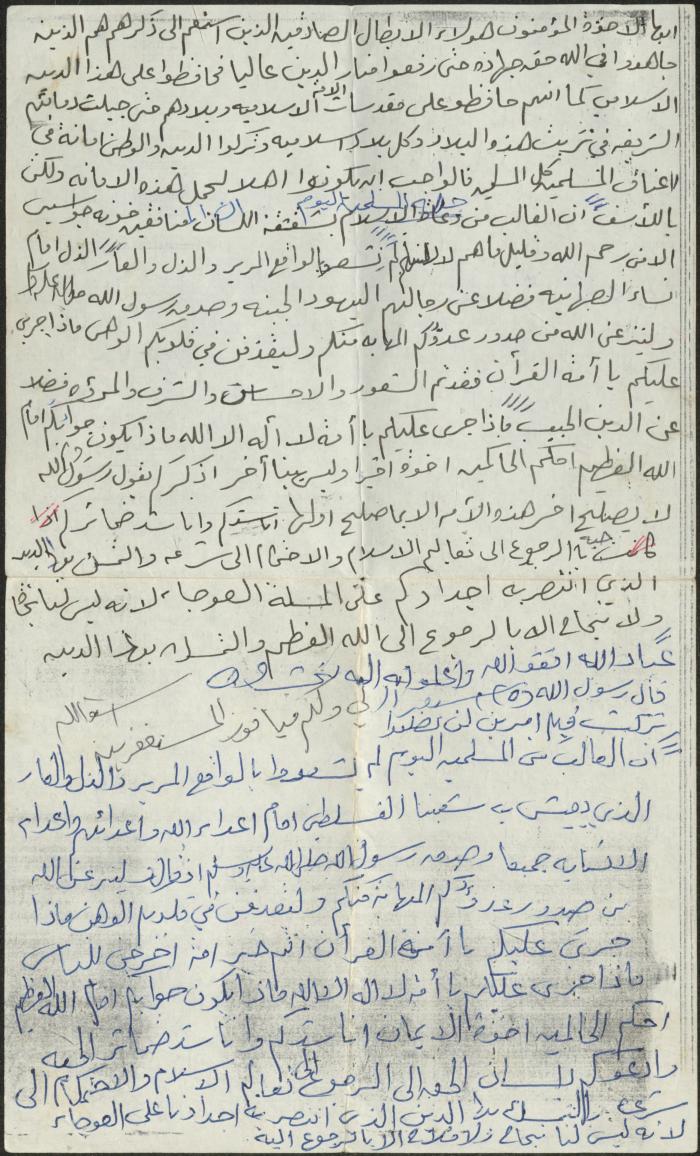 ايها الاخوة المؤمنون هولاء الابطال الصادقين الذين استمعتم الى ذكرهم هم الذين
جاهدوا في الله حق جهاده حتى رفعوا منار الدين عاليا فحافظوا على هذا الدين
الاسلامي كما انهم حافظو على مقدسات الامه الاسلاميه وبلادهم حتى جبلت دمائهم
الشريفه في تربت هذه البلاد وكل بلاد اسلاميه وتركوا الدين والوطن امانة في
اعناق المسلمين كل المسلمين فالواجب ان يكونوا اهلا لحمل هذه الامانه ولكن
باللأسف ان الغالب من
الا من رحم الله وقليل ما هم لم يشعروا بالواقع المرير والذل والعار الذل امام
نساء الصهاينه فضلا عن رجالهم اليهود الجبنه وصدق رسول الله
ولينزعن الله من صدور عدوكم المهابه منكم وليقذفن في قلوبكم الوهن ماذا جرى
عليكم يا أمة القرأن فقدتم الشعور والاحساس والشرف والمروءه فضلا
عن الدين الحبيب ماذا جرى عليكم يا أمة لا اله الا الله ماذا يكون جوابكم امام
الله العظيم احكم الحاكمين اخوة اخيرا وليس بينا أخر اذكركم بقول رسول الله
لا يصلح اخر هذه الأمه الا بما صلح اولها اناشدكم واناشد ضمائركم
بالرجوع الى تعاليم الاسلام والاحتكام الى شرعه والتمسك بهذا الدين
الذي انتصر به اجدادكم على الملة العوجاء لانه ليس لنا نجاحا
ولا نجاح الا بالرجوع الى الله العظيم والتمسك بهذا الدين
عباد الله اتقوا الله واعلموا انكم اليه تحشرون
قال رسول الله (ص)
تركت فيكم امرين لن تضلوا
لي ولكم فيا فوز المستغفرين استغفر الله
ان الغالب من المسلمين اليوم لم يشعروا بالواقع المرير والذل والعار
الذي يعيش به شعبنا الفلسطيني امام اعداء الله واعدائهم واعداء
الانسانيه جميعا وصدق رسول الله صلى الله عليه وسلم اذ قال لينزعن الله
من صدور عدوكم المهابة منكم وليقذفن في قلوبكم الوهن ماذا
جرى عليكم يا أمة القرأن انتم خير امة اخرجت للناس
ماذا جرى عليكم يا أمة لا اله الا الله ماذا يكون جوابكم امام الله العظيم
احكم الحاكمين اخوة الايمان اناشدكم واناشد ضمائركم الحيه
وادعوكم بلسان الحق الى الرجوع الى تعاليم الاسلام والاحتكام الى
شرعه والتمسك بهذا الدين الذي انتصر به اجدادنا على العوجاء
لانه ليس لنا نجاح ولا فلاح الا بالرجوع اليه